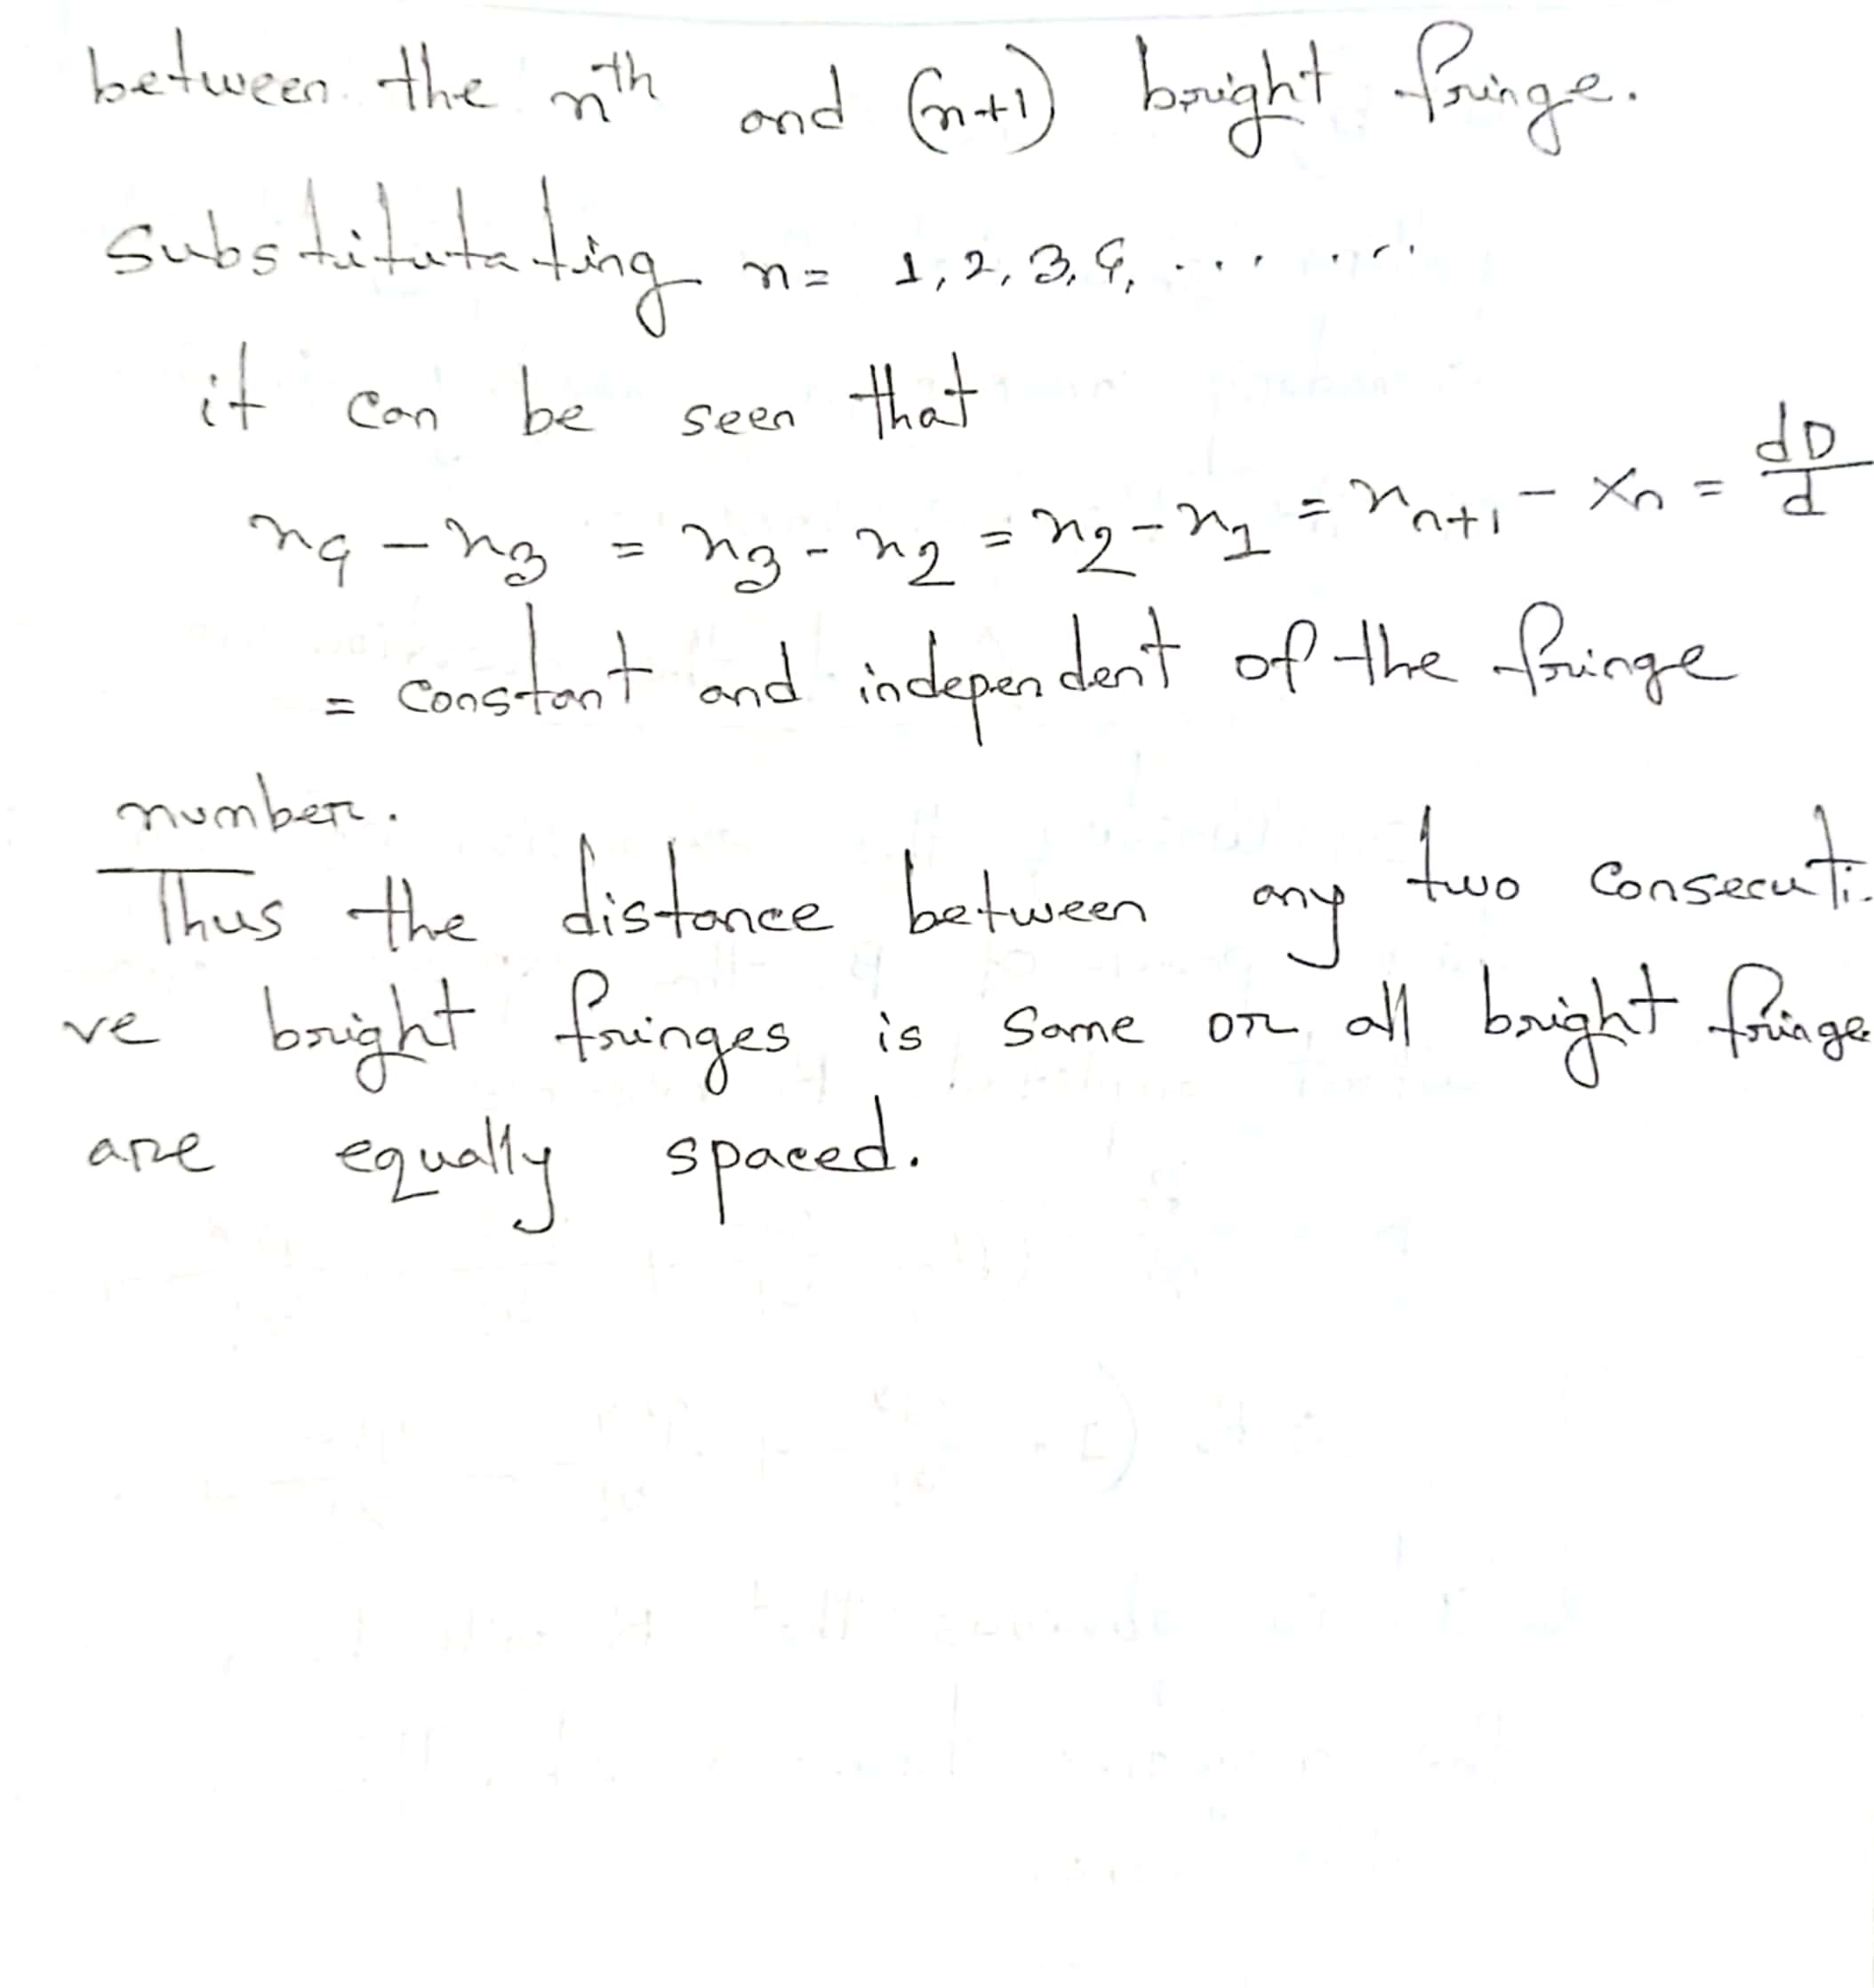 between the nth and (n+1) bright fringe.
Substitutating n= 1, 2, 3, 4, . . . . . . .
it can be seen that
x4 - x3 = x3 - x2 = x2 - x1 = xn+1 - xn = dD/d
= constant and independent of the fringe
number.
Thus the distance between any two consecuti-
ve bright fringes is same or all bright fringe
are equally spaced.